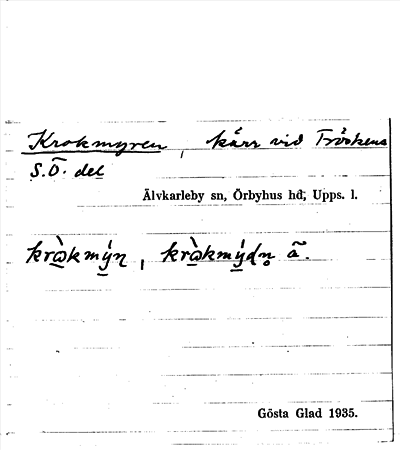 Krokmyren, kärr vid Tröskens
S.Ö. del
Älvkarleby sn, Örbyhus hd, Upps. l.
krὼkmýn, krὼkmýdn̥ ã.
Gösta Glad 1935.